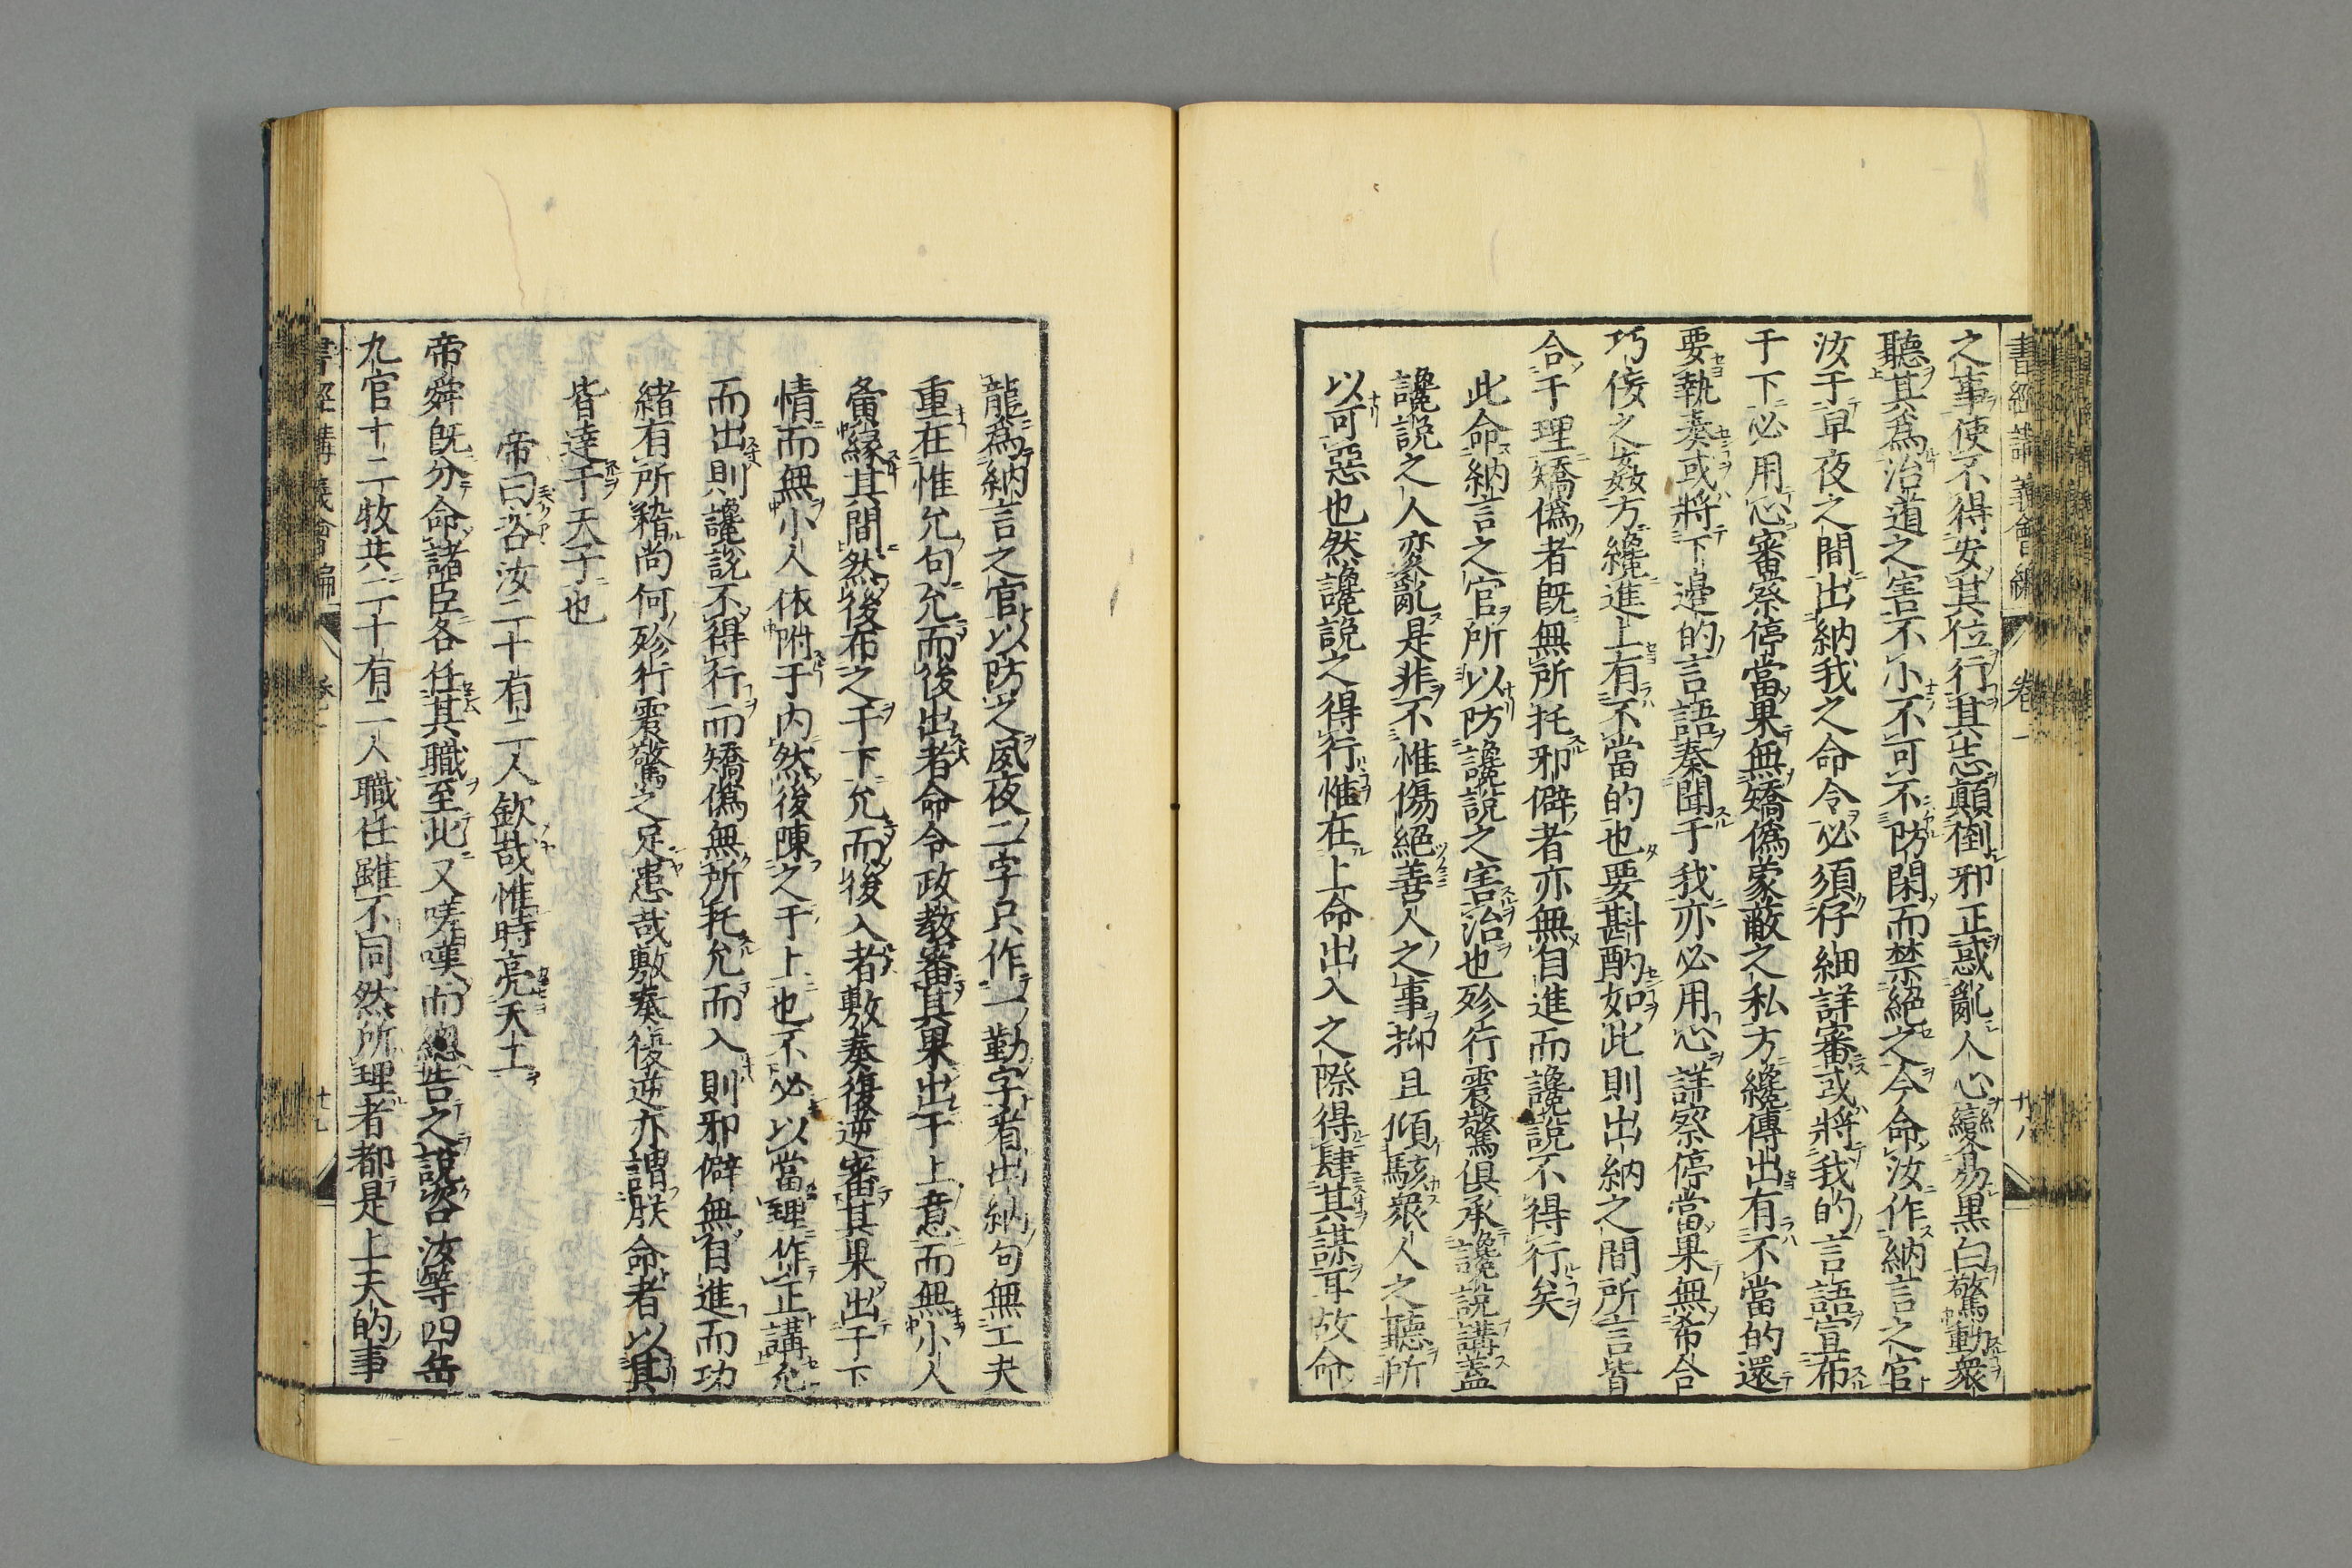 書經講義會編 卷一 廿八
之事使不得安其位行其志顛倒邪正惑亂人心變易黒白驚動衆
聽其爲治道之害不小不可不防閑而禁絕之今命汝作納言之官
汝于早夜之間出納我之命令必須仔細詳審或將我的言語宣布
于下必用心審察停當果無矯僞蒙蔽之私方纔傳出有不當的還
要執奏或將下邉的言語奏聞于我亦必用心詳察停當果無希合
巧侫之姦方纔進上有不當的也要斟酌如此則出納之間所言皆
合于理矯僞者既無所托邪僻者亦無自進而讒說不得行矣
此命納言之官所以防讒說之害治也殄行震驚俱承讒說講蓋
讒說之人変亂是非不惟傷絕善人之事抑且傾駭衆人之聽所
以可惡也然讒說之得行惟在上命出入之際得肆其謀耳故命
龍爲納言之官以防之夙夜二字只作一勤字看出納句無工夫
重在惟允句允而後出者命令政教審其果出于上意而無小人
夤緣其間然後布之于下允而後入者敷奏復逆審其果出于下
情而無小人依附于内然後陳之于上也不必以當理作正講允
而出則讒説不得行而矯僞無所托允而入則邪僻無自進而功
緒有所稽尚何殄行震驚之足患哉敷奏復逆亦謂朕命者以其
皆達于天子也
帝曰咨汝二十有二人欽哉惟時亮天工
帝舜既分命諸臣各任其職至此又嗟嘆而總告之說咨汝等四岳
九官十二牧共二十有二人職任雖不同然所理者都是上天的事
書經講義會編 卷一 廿九